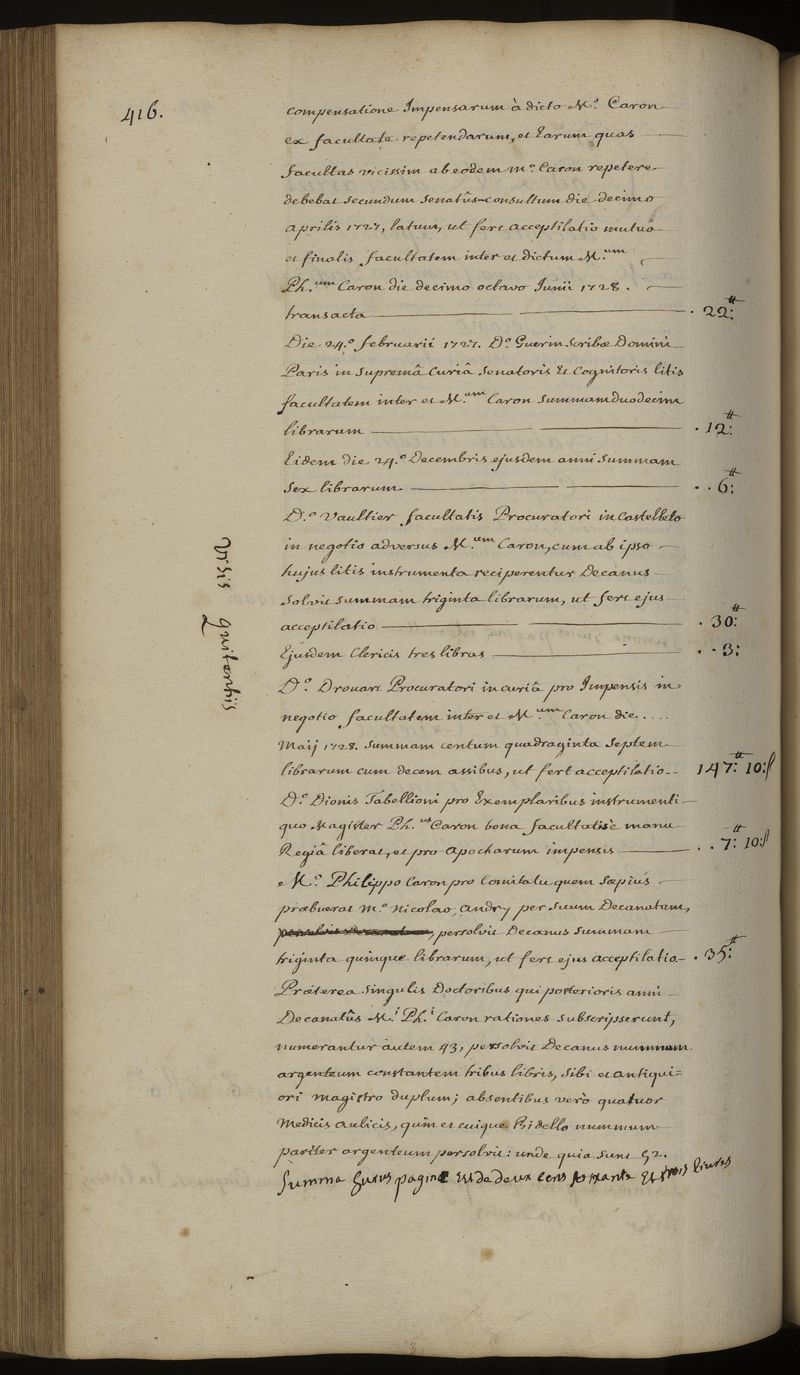 416.
compensatione Impensarum à dicto M.º Caron
ex facultate repetendarum, et Earum quas
facultas vicissim ab eodem m.º Caron repetere
debebat secundum Senatûs-consultum die decimo
aprilis 1727, latum, ut fert acceptilatio mutua
et finalis facultatem inter et dictum M.um
Ph.um Caron die decimo octavo Junii 1728.
transacta . 22:#
Die 24.º februarii 1727. D.º Guerin Scribæ Domini
Paris in supremâ Curiâ Senatoris Et Cognitoris litis
facultatem inter et M.um Caron Summam duodecim
librarum . 12:#
Eidem die 24.º Decembris ejusdem anni Summam
Sex librarum . . 6:#
D.º Vaultier facultatis Procuratori in Castelleto
in negotio adversus M.um Caron, cum ab ipso
hujus litis instrumenta reciperentur Decanus
Solvit Summam triginta librarum, ut fert ejus
acceptilatio . 30:#
Ejusdem Clericis tres libras . . 3:
D.º Drouart Procuratori in curiâ pro Impensis in
negotio facultatem inter et M.um Caron die....
Maij 1728. Summam centum quadraginta Septem
librarum cum decem assibus, ut fert acceptilatio.. 147:# 10:ſ
D.º Dionis Tabellioni pro Exemplaribus instrumenti
quo Magister Ph.us Caron bona facultatis è manu
Regiâ liberat, et pro apocharum impensis . . 7:# 10:ſ
M.º Philippo Caron pro Comitatu quem Sæpius
præbuerat m.º Nicolao Andry per Suum Decanatum,
persolvit Decanus Summam
triginta quinque librarum, ut fert ejus acceptilatio . 35:#
Præterea Singulis Doctoribus qui posterioris anni
Decanatûs M.i Ph.i Caron rationes Subscripserunt,
numerantur autem 43, persolvit Decanus nummum
argenteum constantem tribus libris, Sibi et antiqui=
ori magistro duplum; absentibus verò quatuor
Medicis aulicis, quin et cuique Bidello nummum
pariter argenteum persolvit: unde quia Sunt 52.
Summa hujus paginæ Est de deux cens soixante Et trois livres
Visis quitantiis